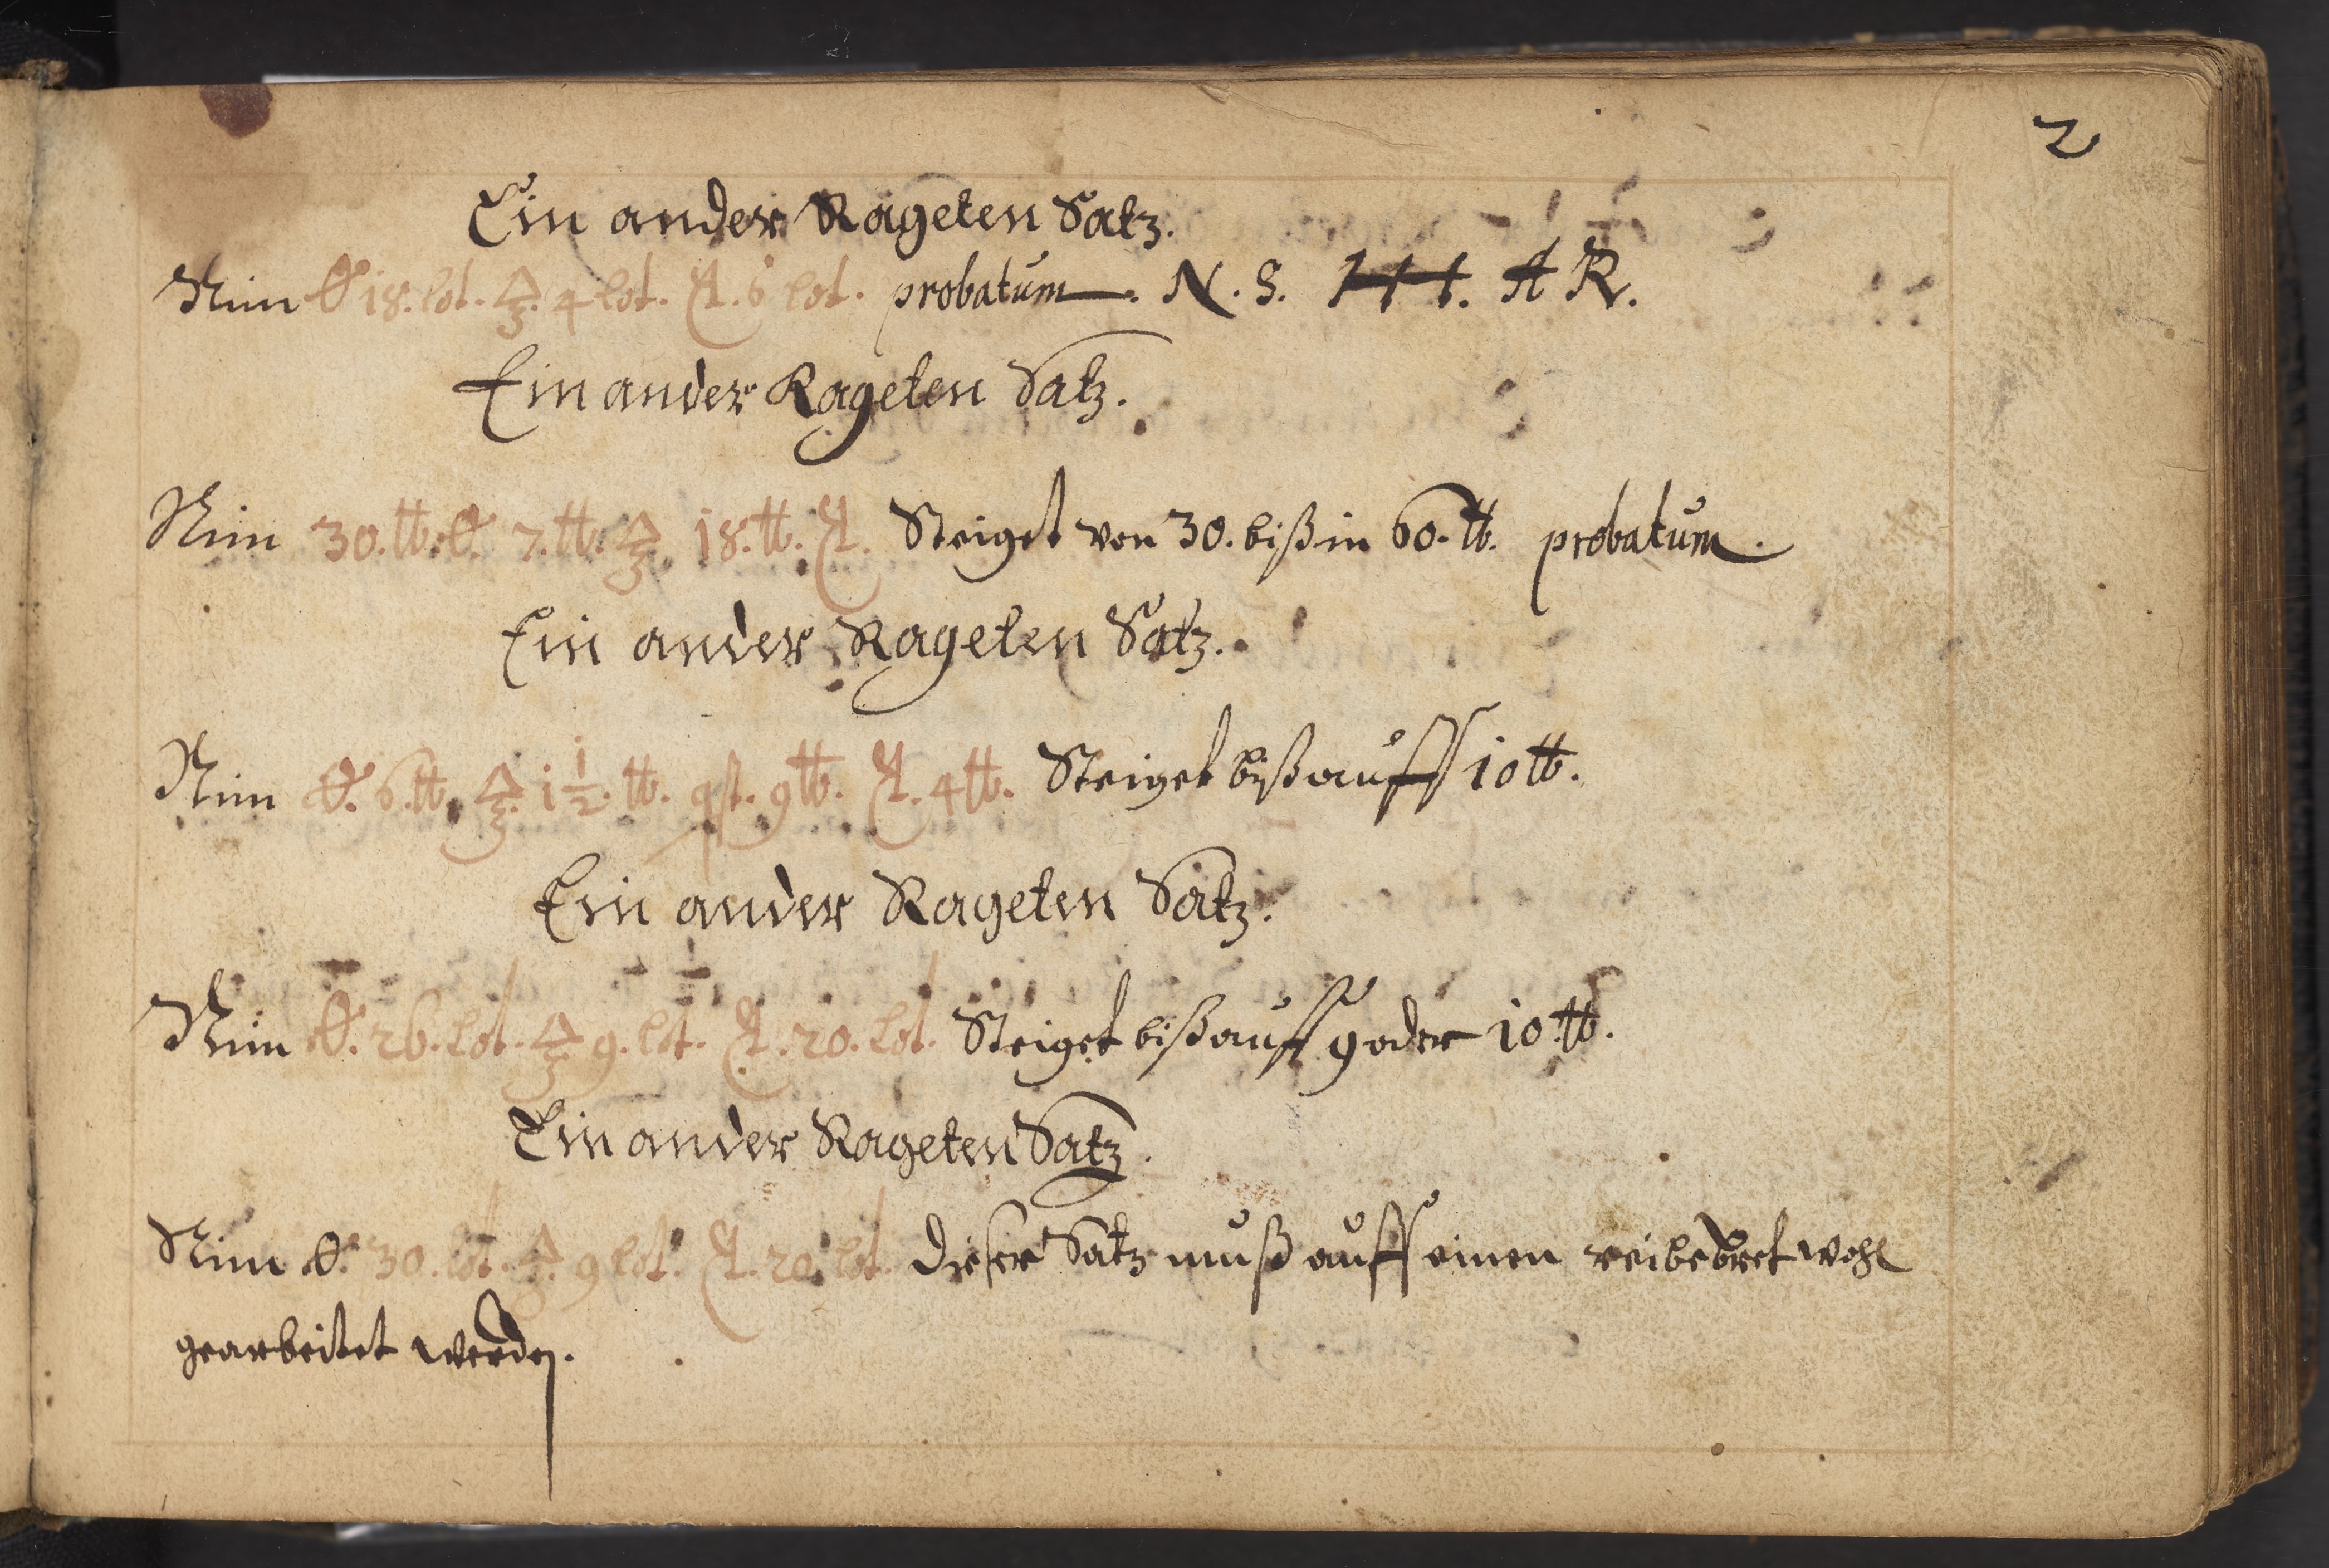 2
Ein ander Rageten Satz.
Nim 18. lot. 4 lot. 6 lot. probatum. N. S. A R.
Ein ander Rageten Satz.
Nim 30. ℔. 7. ℔. 18. ℔. Steiget von 30. biß in 60. ℔. probatum.
Ein ander Rageten Satz.
Nim 6. ℔. 1 1/2. ℔. 9 ℔. 4 ℔. Steiget biß auff 10 ℔.
Ein ander Rageten Satz.
Nim 26. lot. 9. lot. 20. lot. Steiget biß auff 9 oder 10. ℔.
Ein ander Rageten Satz.
Nim 30. lot. 9 lot. 20. lot. dieser Satz muß auff einen reibebret wohl
gearbeitet werden.